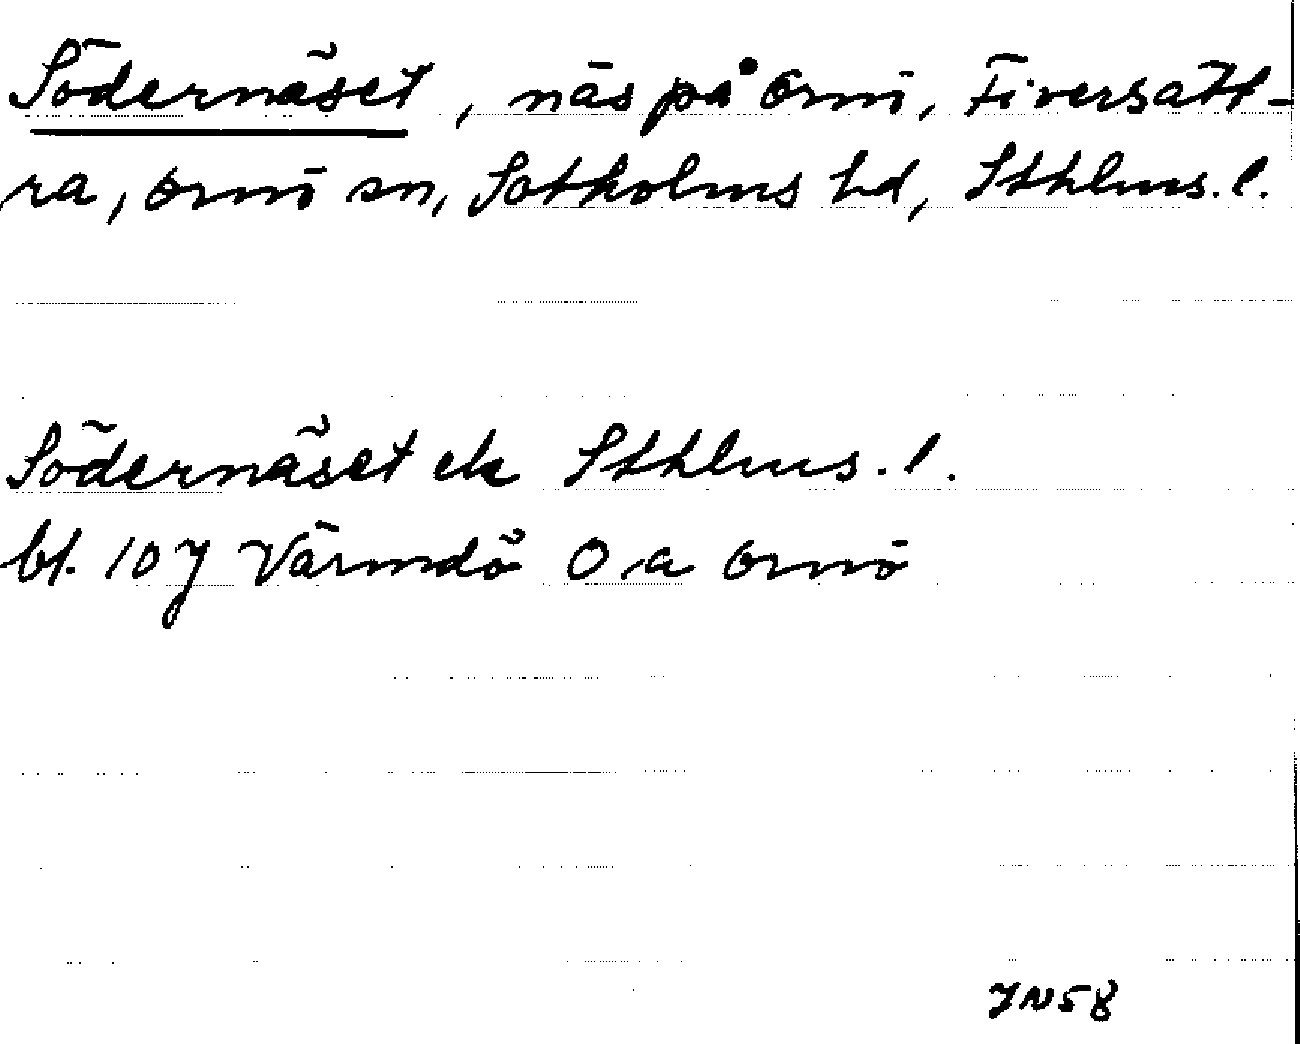 Södernäset, näs på Ornö, Fiversätt-
ra, Ornö sn, Sotholms hd, Sthlms. l.
Södernäset ek Sthlms. l.
bl. 107 Värmdö O a Ornö
JN58